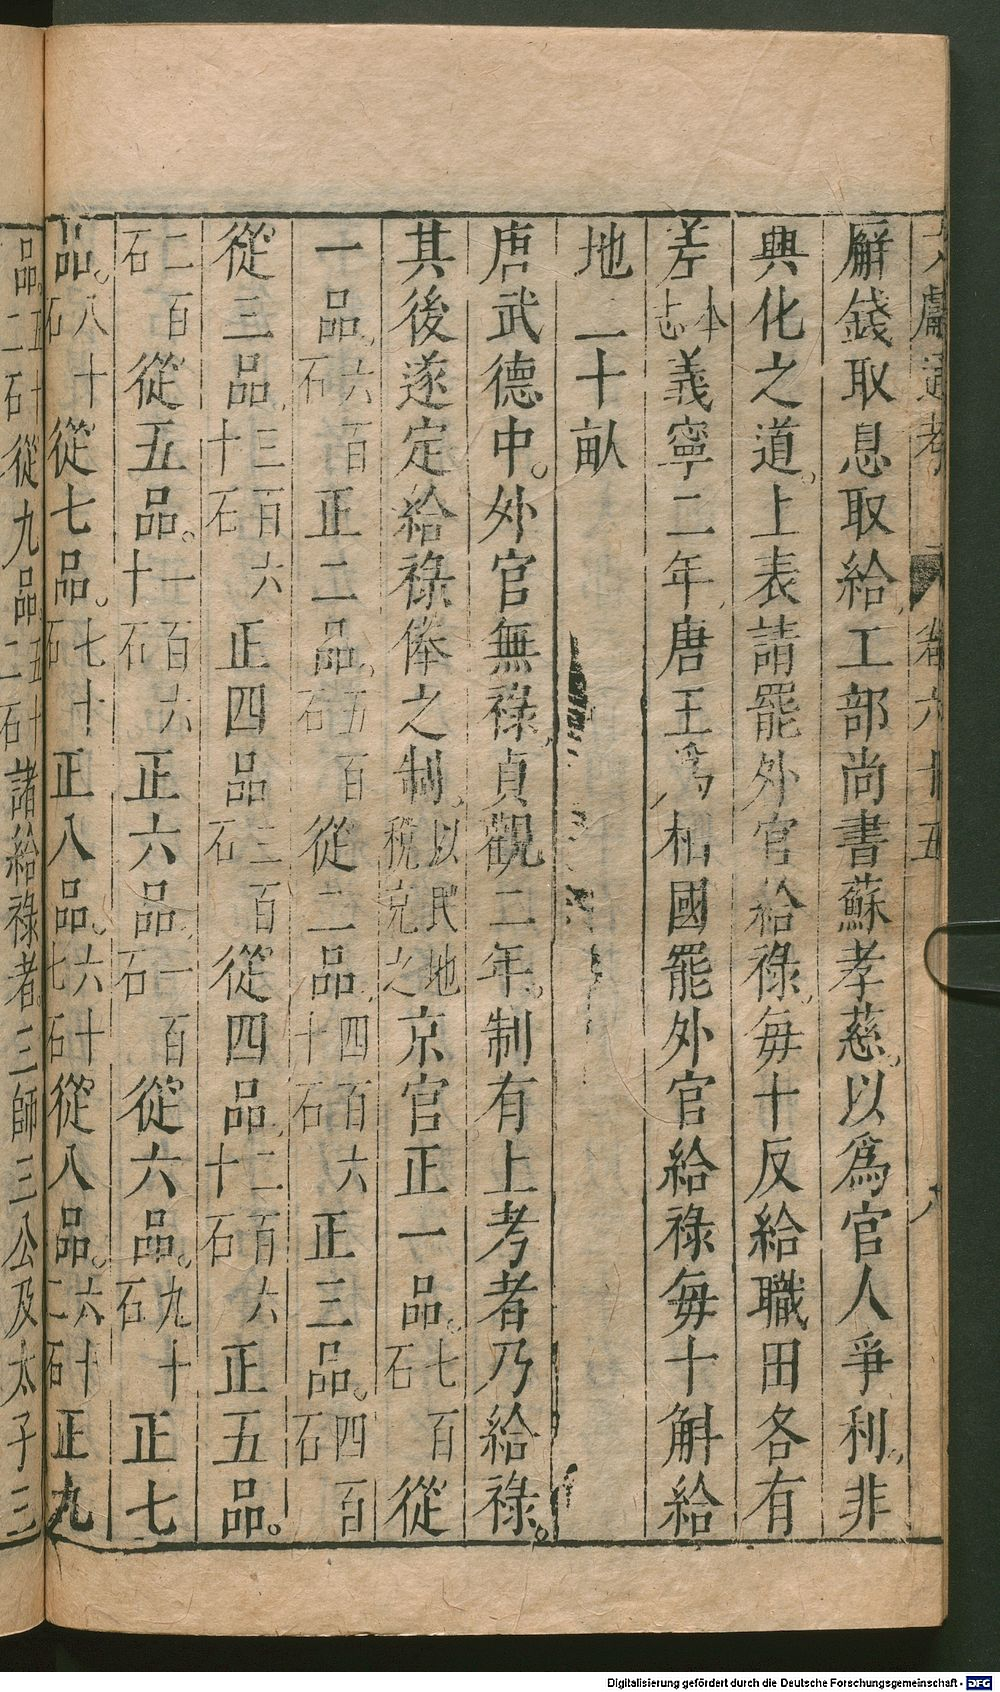 文獻通考 卷六十五 八
廨錢取息取給工部尚書蘇孝慈以爲官人爭利非
興化之道。上表請罷外官給祿每十反給職田各有
差本志義寧二年唐王爲相國罷外官給祿每十斛給
地二十畝
唐武德中。外官無祿貞觀二年。制有上考者乃給祿。
其後遂定給祿俸之制以民地稅充之京官正一品。七百石從
一品。六百石正二品。五百石從二品四百六十石正三品。四百石
從三品三百六十石正四品三百石從四品二百六十石正五品。
二百石從五品。一百六十石正六品一百石從六品。九十石正七
品。八十石從七品。七十石正八品。六十七石從八品。六十二石正九
品五十二石從九品五十二石諸給祿者三師三公及太子三
Digitalisierung gefördert durch die Deutsche Forschungsgemeinschaft - DFG